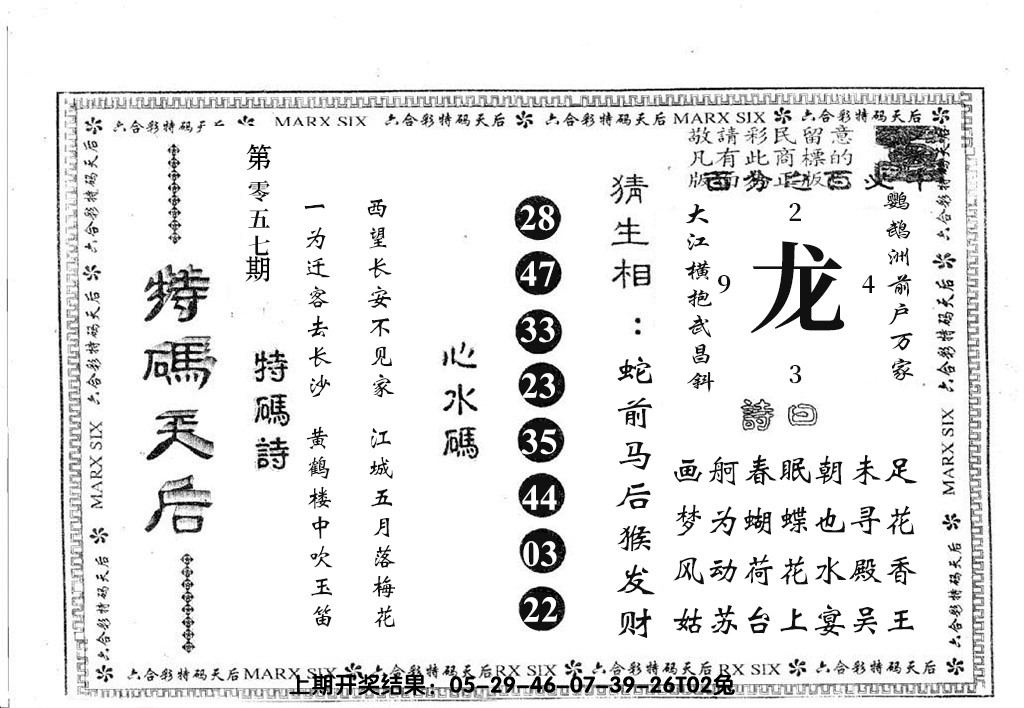 六合彩特码天后 MARX SIX 六合彩特码天后 六合彩特码天后 MARX SIX 六合彩特码天后
敬請彩民留意
凡有此商標的
版面为正版
特碼天后
第零五七期
特碼詩
一为迁客去长沙 黄鹤楼中吹玉笛
西望长安不见家 江城五月落梅花
心水碼
28
47
33
23
35
44
03
22
猜生相：蛇前马后猴发财
大江横抱武昌斜
2
9 龙 4
3
鹦鹉洲前户万家
詩曰
画舸春眠朝未足
梦为蝴蝶也寻花
风动荷花水殿香
姑苏台上宴吴王
六合彩特码天后 MARX SIX 六合彩特码天后
六合彩特码天后 MARX SIX 六合彩特码天后
六合彩特码天后 MARX SIX 六合彩特码天后 RX SIX 六合彩特码天后 RX SIX 六合彩特码天后
上期开奖结果：05-29-46-07-39-26T02兔